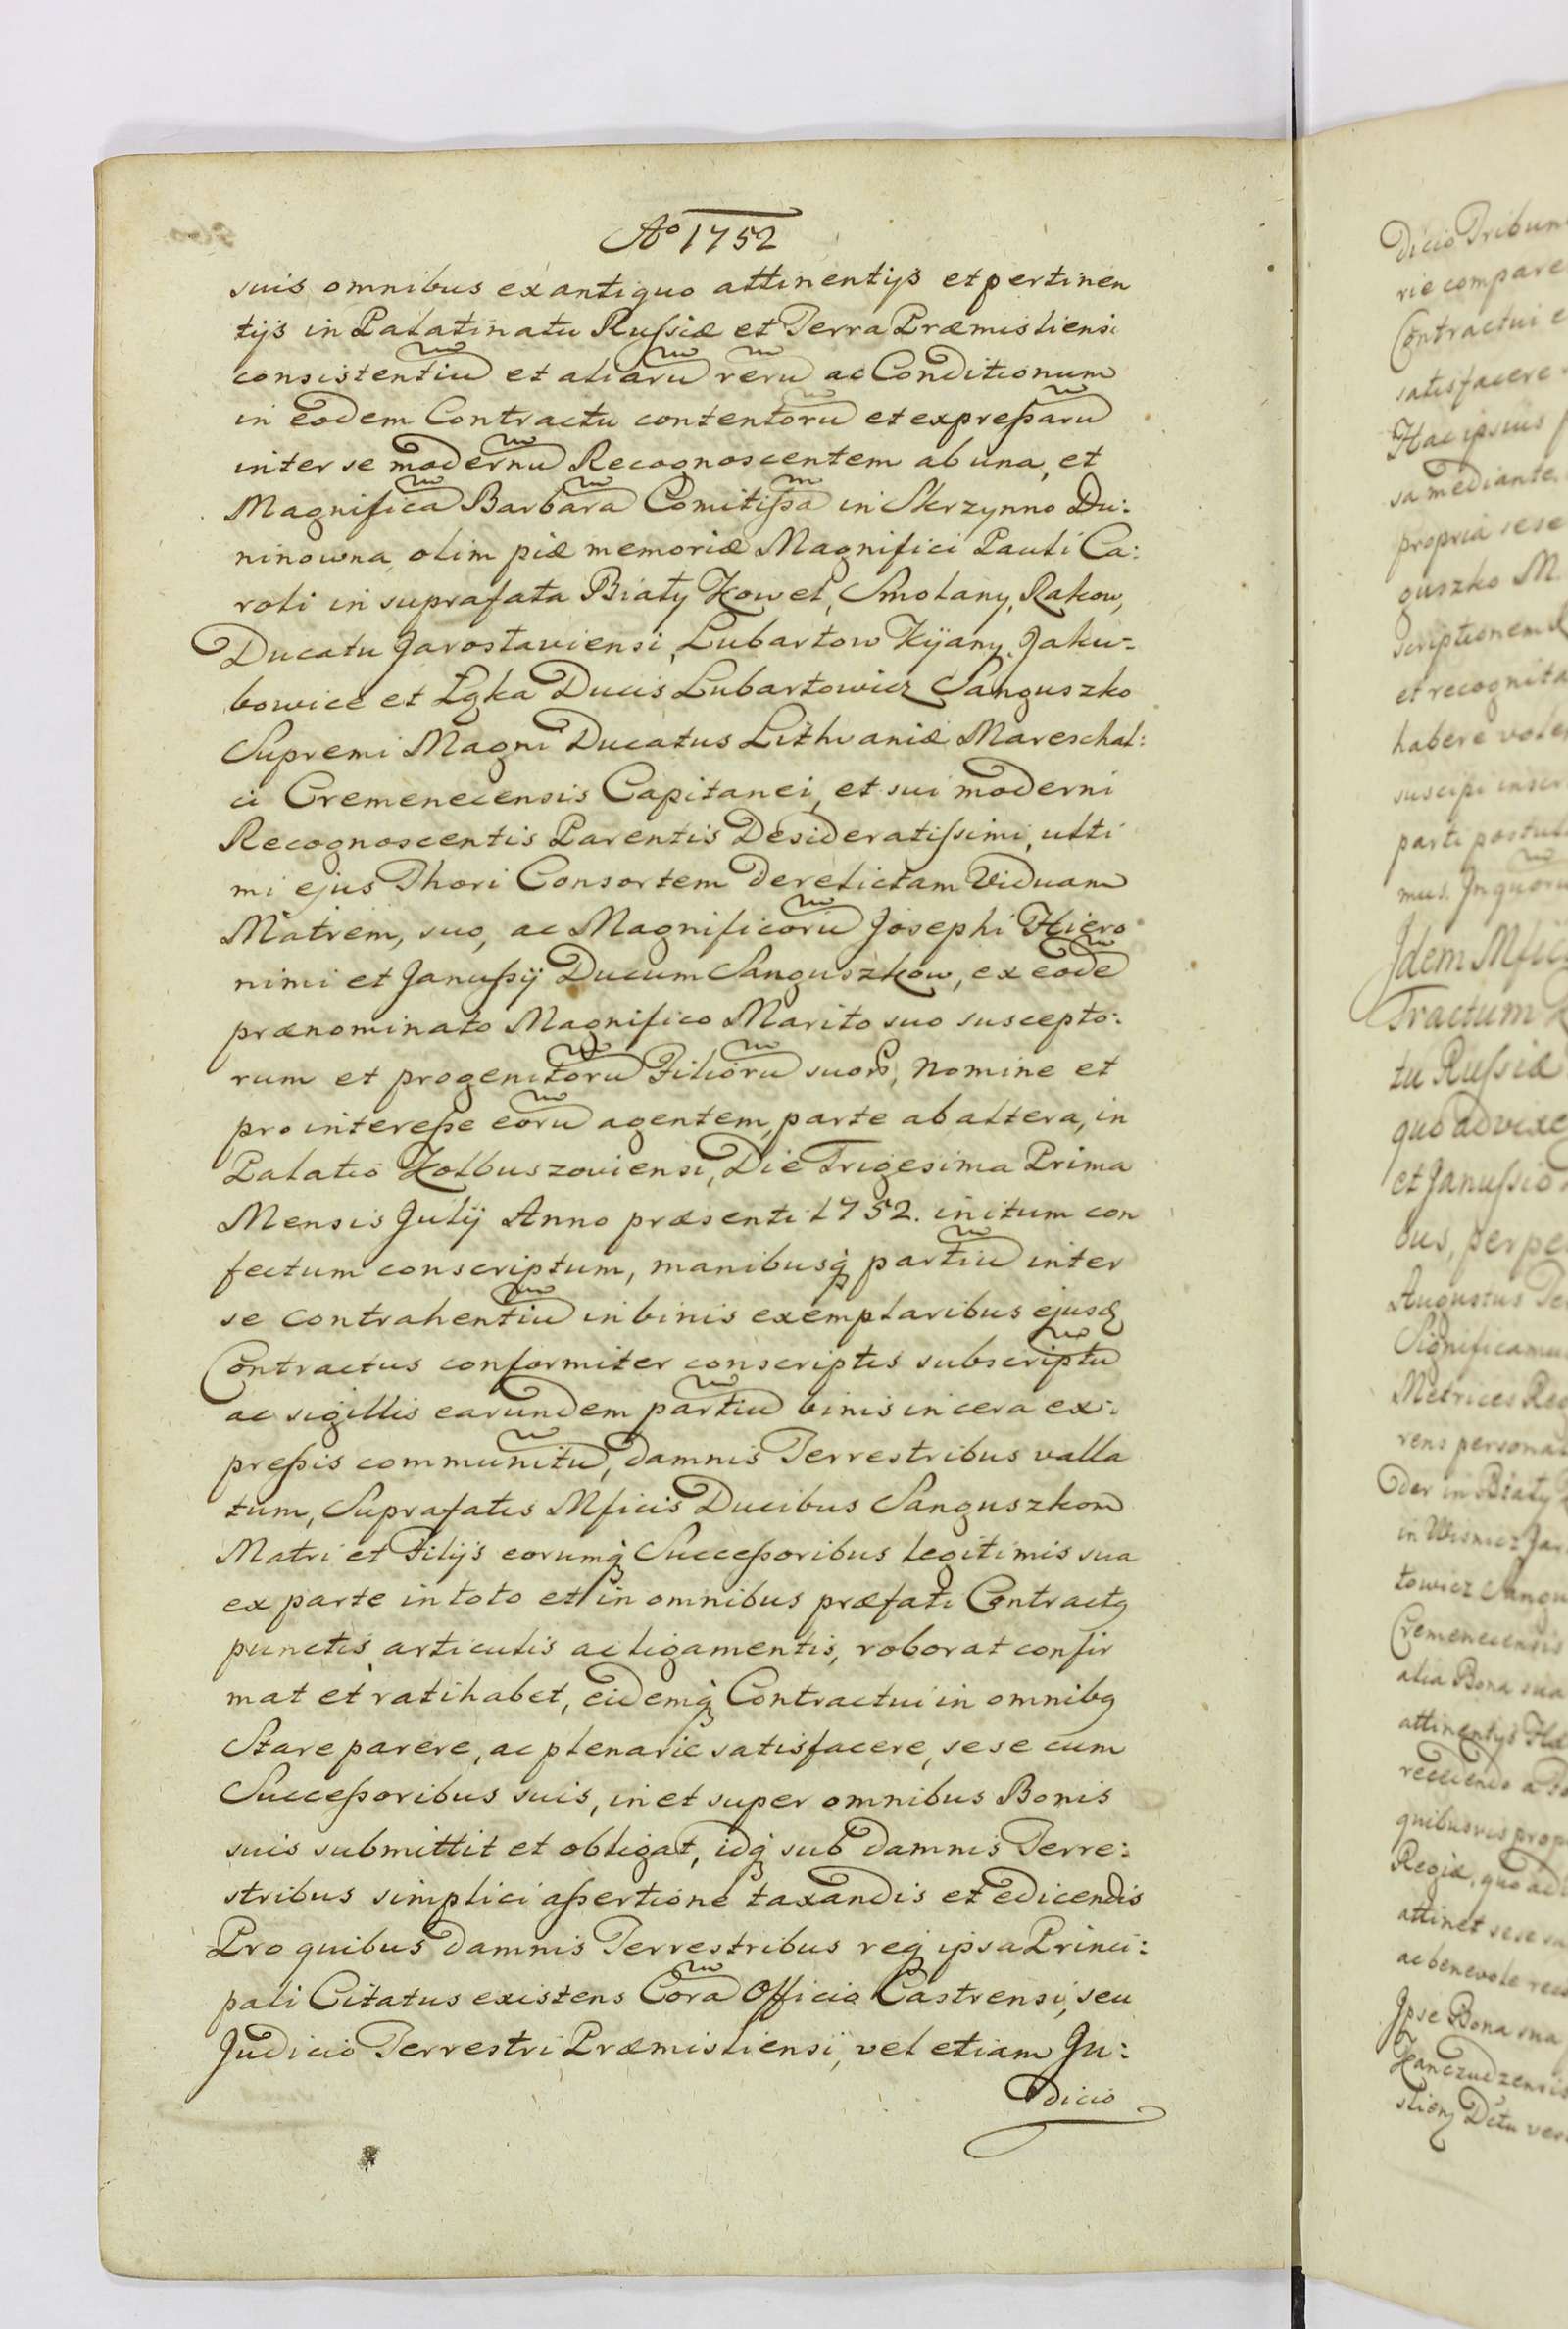 Ao 1752
suis omnibus ex antiquo attinentijs et pertinen
tijs in Palatinatu Russiæ et Terra Præmisliensi
consistentiũ et aliarũ rerũ ac Conditionum
in eodem Contractu contentorũ et expressarũ
inter se modernũ Recognoscentem ab una, et
Magnificã Barbarã Comitissã in Skrzynno Du:
ninowna, olim piæ memoriæ Magnifici Pauli Ca:
roli in suprafata Biały Kowel, Smolany, Rakow,
Ducatu Jarosłaviensi, Lubartow Kijany, Jaku-
bowice et Łąka Ducis Lubartowicz Sanguszko
Supremi Magni Ducatus Lithvaniæ Mareschal:
ci Cremenecensis Capitanei, et sui moderni
Recognoscentis Parentis Desideratissimi, ulti
mi ejus Thori Consortem derelictam Viduam
Matrem, suo, ac Magnificorũ Josephi Hiero
nimi et Janussij Ducum Sanguszkow, ex eodẽ
prænominato Magnifico Marito suo suscepto:
rum et progenitorũ Filiorũ suorũ, Nomine et
pro interesse eorũ agentem, parte ab altera, in
Palatio Kolbuszoviensi, Die Trigesima Prima
Mensis Julij Anno præsenti 1752. initum con
fectum conscriptum, manibusq́ partiũ inter
se contrahentiũ in binis exemplaribus ejusd
Contractus conformiter conscriptis subscriptũ
ac sigillis earundem partiũ binis in cera ex:
pressis communitũ, damnis Terrestribus valla
tum, Suprafatis Mficis Ducibus Sanguszkom
Matri et Filijs eorumq́ Successoribus legitimis sua
ex parte in toto et in omnibus præfati Contractq
punctis, articulis ac ligamentis, roborat confir
mat et ratihabet, eidemq́ Contractui in omnibq
Stare parere, ac plenarie satisfacere, sese cum
Successoribus suis, in et super omnibus Bonis
suis submittit et obligat, idq́ sub damnis Terre:
stribus simplici assertione taxandis et edicendis
Pro quibus damnis Terrestribus req ipsa Princi:
pali Citatus existens Corã Officio Castrensi, seu
Judicio Terrestri Præmisliensi, vel etiam Ju:
dicio
dicio Tribun
rie compare
Contractui e
satisfacere
Hac ipsius
sa mediante
propria sese
guszko M
scriptionem
et recognita
habere vole
suscipi inscr
parti postul
mus. In quorũ
Idem Mfic
Tractum
tu Russiæ
quo advixe
et Janussio
bus, perpe
Augustus Ter
Significamu
Metrices Reg
rens personal
der in Biały
in Wisnicz Jar
towicz Sangu
Cremenecensis
alia Bona sua
attinentijs
recedendo a
quibusvis prop
Regiæ, quo ad
attinet sese
ac benevole rec
Ipse Bona sua
Kanczudzensis